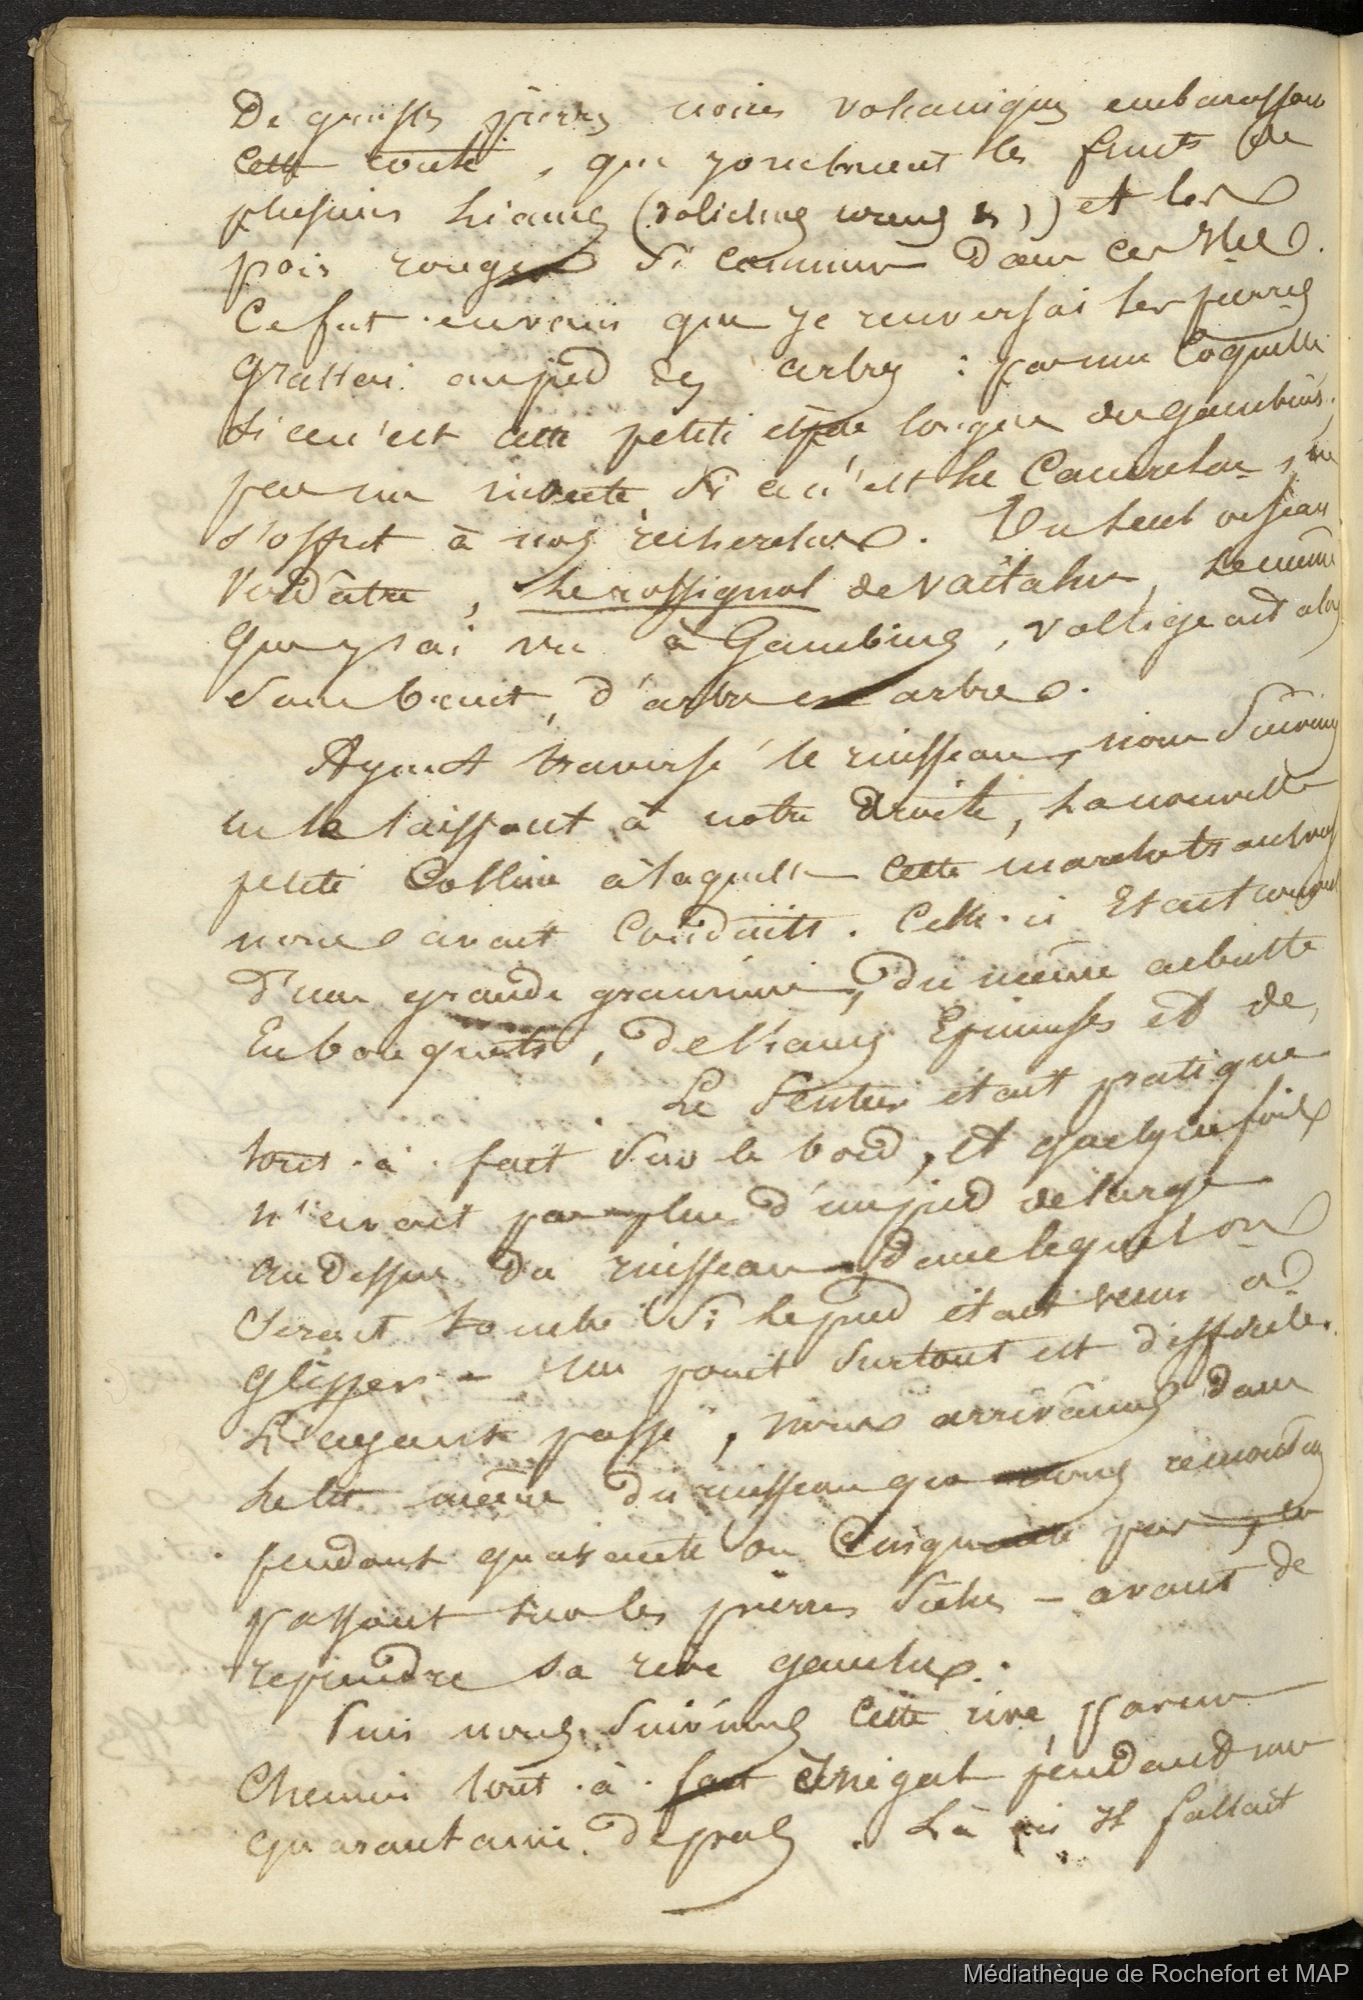 De grosses pierres noires volcaniques embarassent
cette route, que jonchaient les fruits de
plusieurs liaines (dolichus urens &,) et les
pois rouges si communs dans ces Iles.
Ce fut envain que je renversai les pierres
grattai au pied des arbres : pas une Coquille
si ce n'est cette petite longue de gambiers,
pas un insecte, si ce n'est le Cancrelas, ne
s'offrit à nos recherches. Un seul oiseau
Verdâtre, le rossignol de Vaïtahu, le même
que j'ai vu à Gambiers, voltigeait alors
sans bruit, d'arbre en arbre.
Ayant traversé le ruisseau, nous suivimes
en le laissant à notre droite, la nouvelle
petite Colline à laquelle cette marche
nous avait Conduits. Celle-ci Etait
d'une grande graminée, du même arbuste
En bouquets, de liaines Epineuses et de
. Le sentier etait pratiqué
tout-à-fait sur le bord, et quelquefois
n'avait pas plus d'un pied de large
au dessus du ruisseau dans lequel on
serait tombé si le pied était venu à
glisser - un point surtout est difficile.
L'ayant passé, nous arrivâmes dans
le lit même du ruisseau que nous remontames
pendant quarante ou Cinquante pas, en
passant sur les pierres sèches - avant de
rejoindre sa rive gauche.
Puis nous suivimes cette rive, par un
Chemin tout-à-fait inégal pendant une
quarantaine de pas. Là il fallait
Médiathèque de Rochefort et MAP